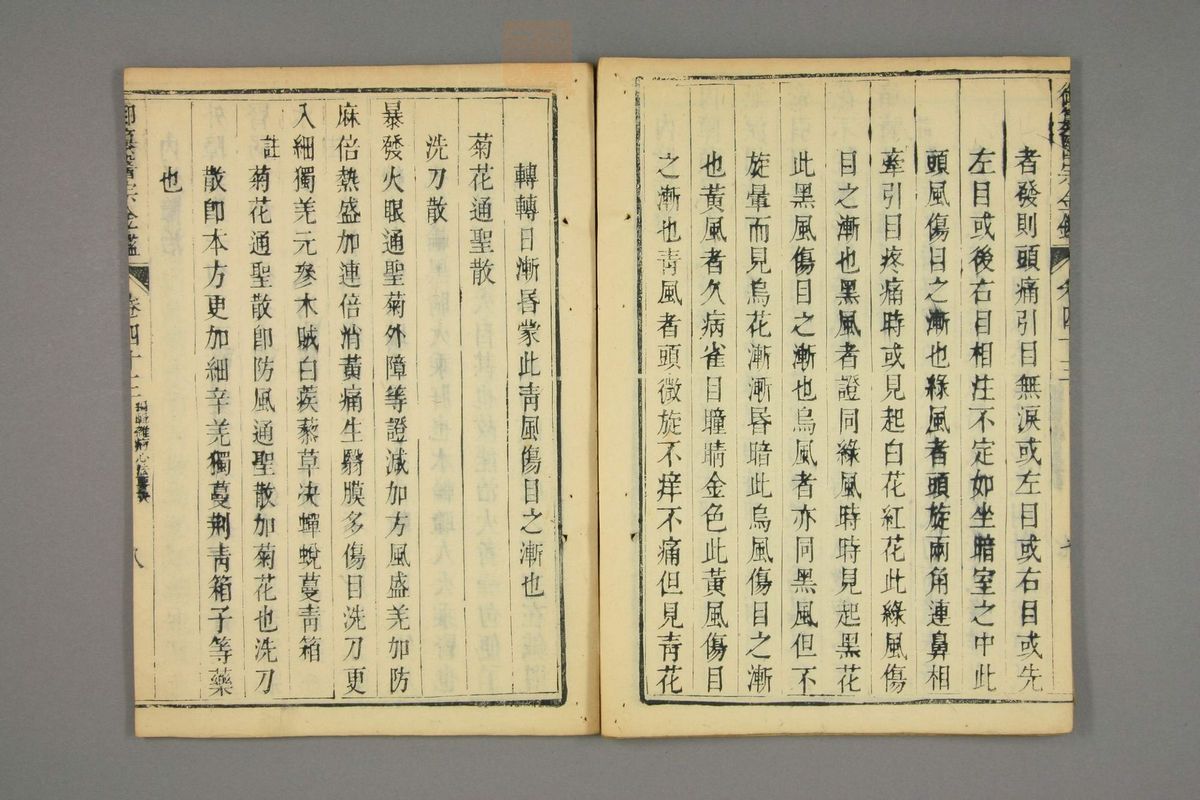 者發則頭痛引目無淚或左目或右目或先
左目或後右目相注不定如坐暗室之中此
頭風傷目之漸也綠風者頭旋兩角連鼻相
牽引目疼痛時或見起白花紅花此綠風傷
目之漸也黑風者證同綠風時時見起黑花
此黑風傷目之漸也烏風者亦同黑風但不
旋暈而見烏花漸漸昏暗此烏風傷目之漸
也黃風者久病雀目瞳睛金色此黃風傷目
之漸也靑風者頭微旋不痒不痛但見靑花
轉轉日漸昏蒙此靑風傷目之漸也
菊花通聖散
洗刀散
暴發火眼通聖菊外障等證減加方風盛羌加防
麻倍熱盛加連倍消黃痛生翳膜多傷目洗刀更
入細獨羌元參木賊白蒺藜草决蟬蛻蔓靑箱
註 菊花通聖散卽防風通聖散加菊花也洗刀
散卽本方更加細辛羌獨蔓荆靑箱子等藥
也
御纂醫宗金鑑 卷四十三 八